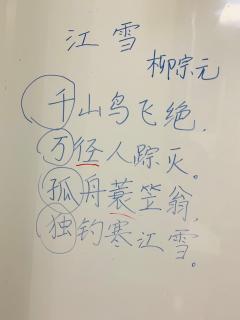 江雪
柳宗元
千山鸟飞绝,
万径人踪灭。
孤舟蓑笠翁,
独钓寒江雪。